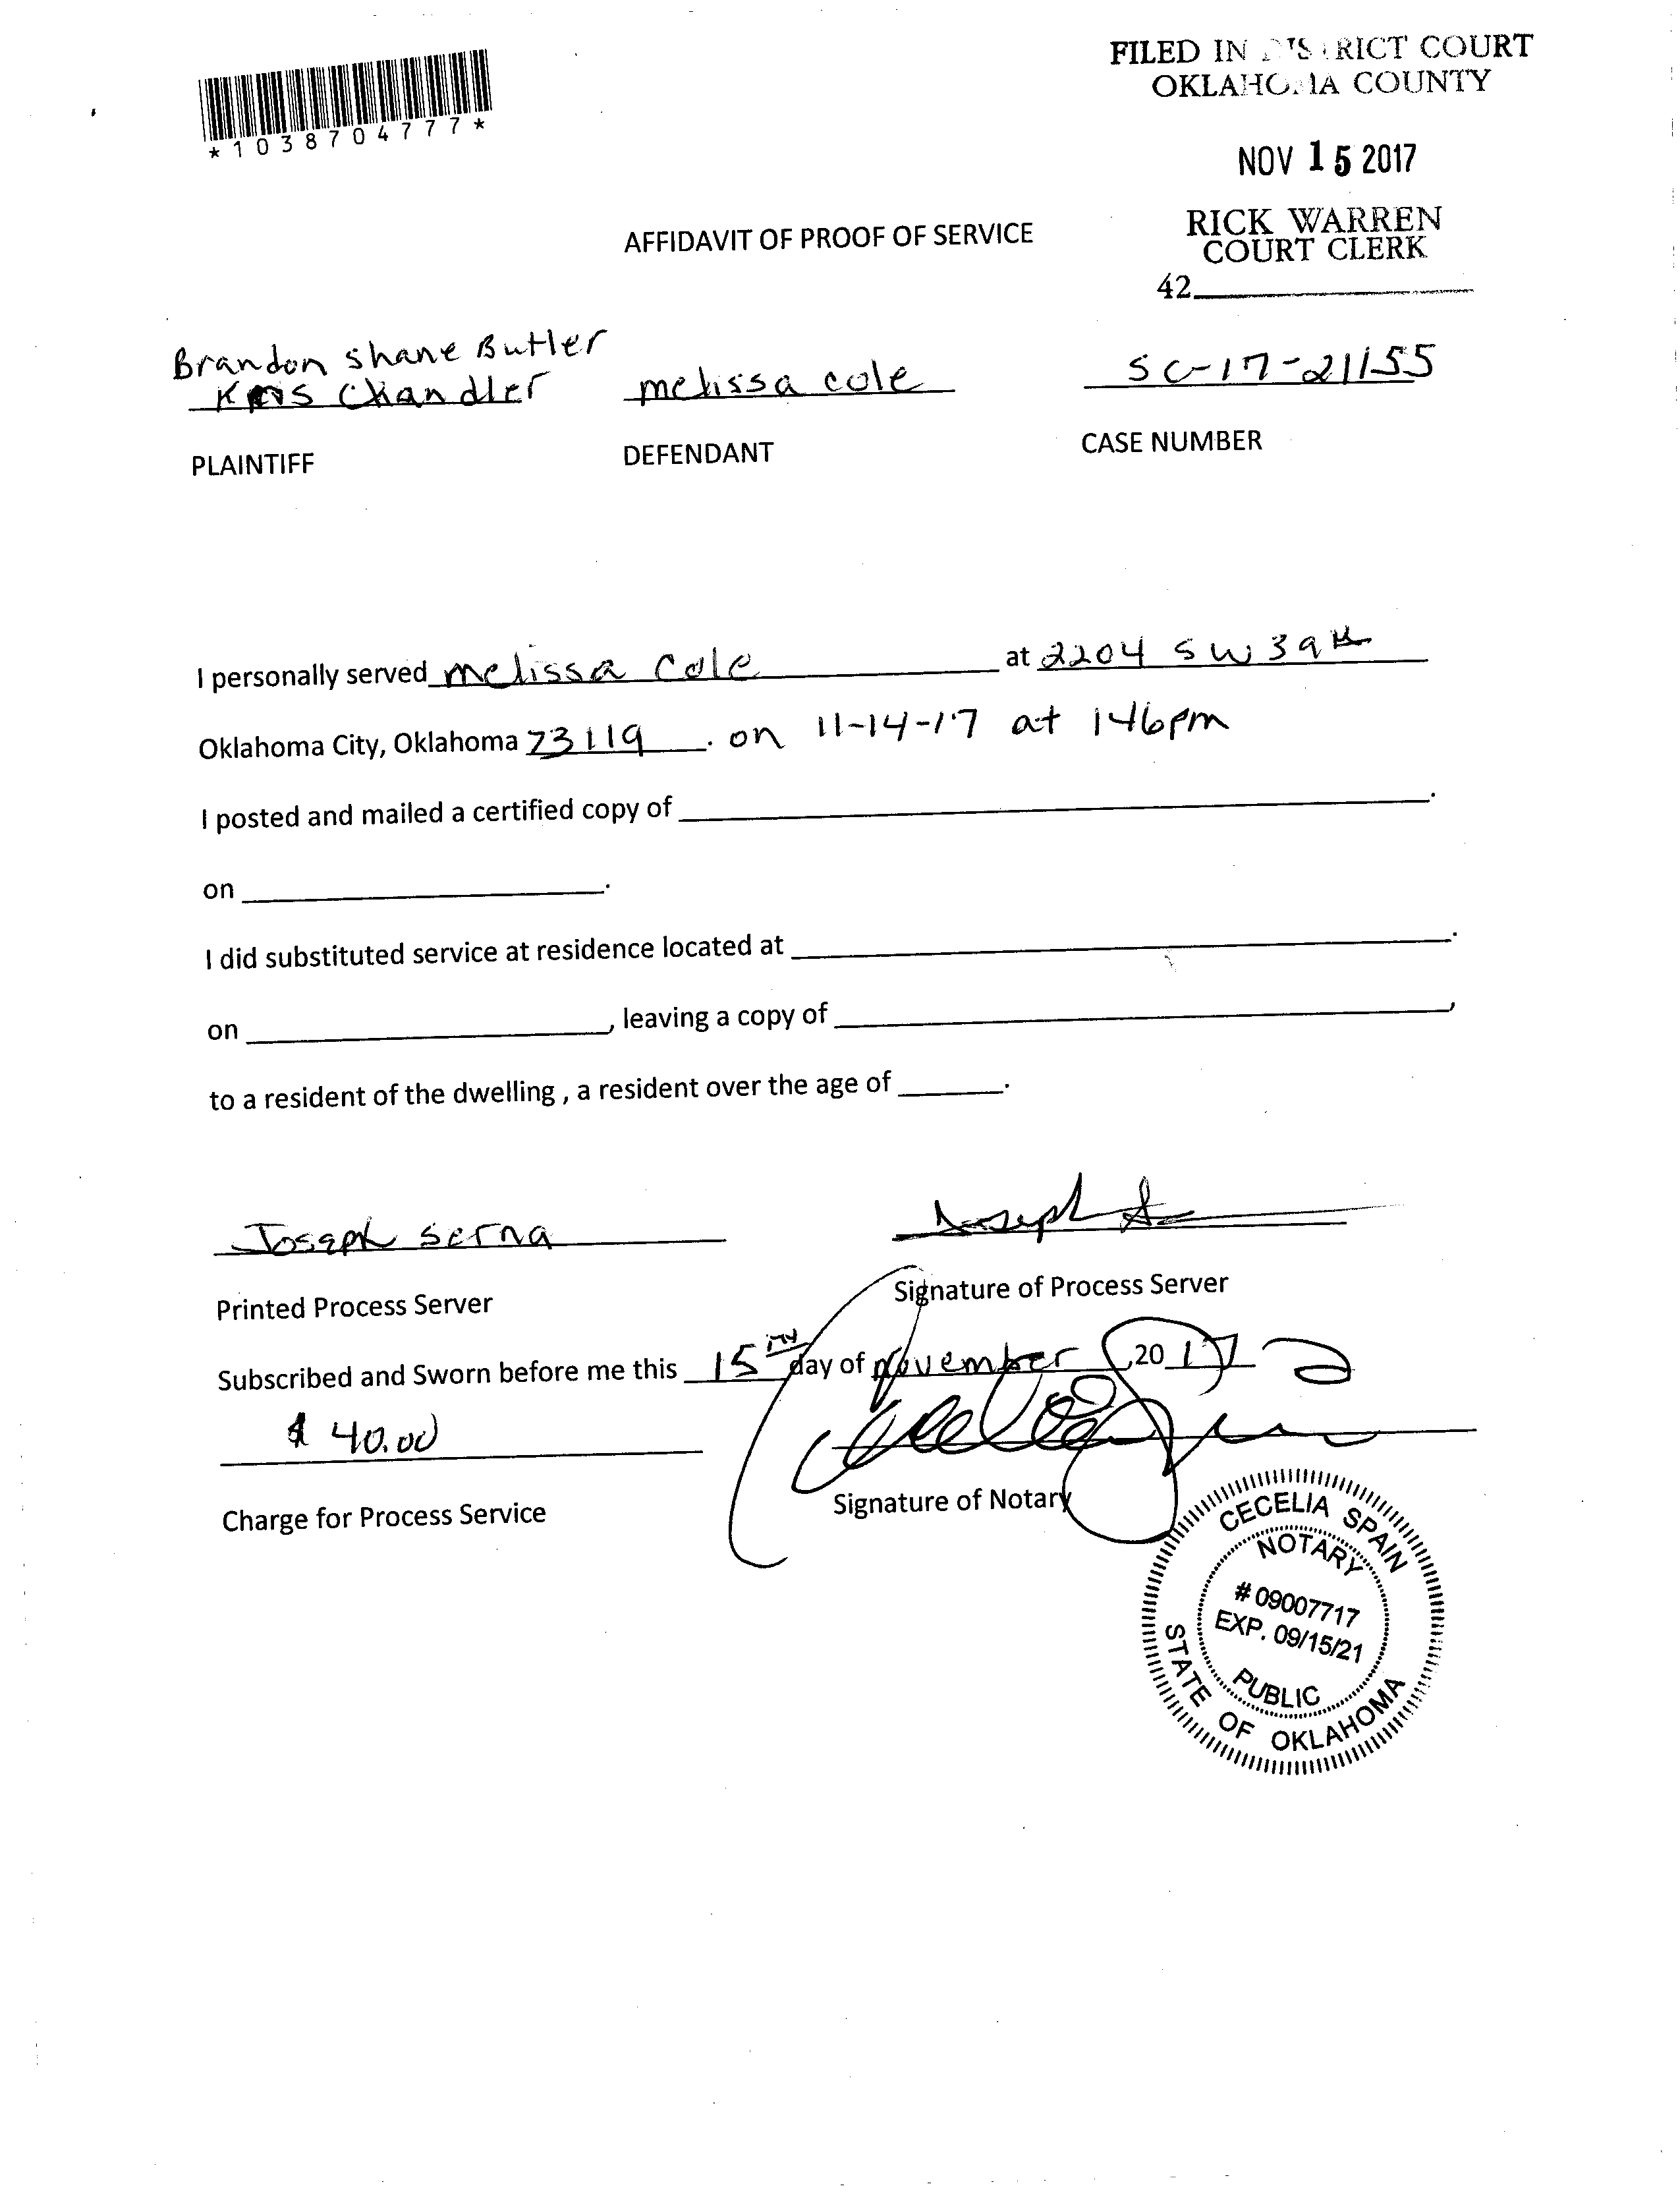 *1038704777*
FILED IN DISTRICT COURT
OKLAHOMA COUNTY
NOV 15 2017
RICK WARREN
COURT CLERK
42
AFFIDAVIT OF PROOF OF SERVICE
Brandon Shane Butler
Kris Chandler
melissa cole
SC-17-21155
PLAINTIFF
DEFENDANT
CASE NUMBER
I personally served melissa Cole at 2204 SW 39th
Oklahoma City, Oklahoma 73119. on 11-14-17 at 146pm
I posted and mailed a certified copy of .
on .
I did substituted service at residence located at .
on , leaving a copy of ,
to a resident of the dwelling , a resident over the age of .
Joseph Serna
Joseph S
Printed Process Server
Signature of Process Server
Subscribed and Sworn before me this 15TH day of November ,2017
$ 40.00
Charge for Process Service
Signature of Notary
CECELIA SPAIN
NOTARY
# 09007717
EXP. 09/15/21
PUBLIC
STATE OF OKLAHOMA